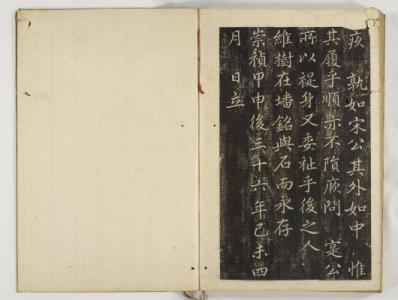 疢 孰如宋公其外如中 惟
其履乎順亦不隋厥問 寔公
所以禔身又委祉乎後之人
維樹在墦銘與石而永存
崇禎甲申後三十六年己未四
月 日立